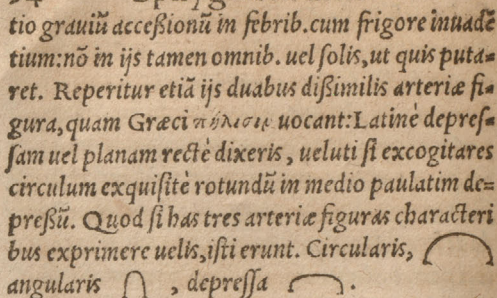 tio grauiū acceßionū in febrib.cum frigore inuadē
tium:nō in ijs tamen omnib. uel solis,ut quis puta-
ret. Reperitur etiā ijs duabus dißimilis arteriæ fi-
gura,quam Græci uocant:Latinè depres-
sam uel planam rectè dixeris, ueluti si excogitares
circulum exquisitè rotundū in medio paulatim de-
preßū. Quod si has tres arteriæ figuras characteri
bus exprimere uelis,isti erunt. Circularis,
angularis , depressa .